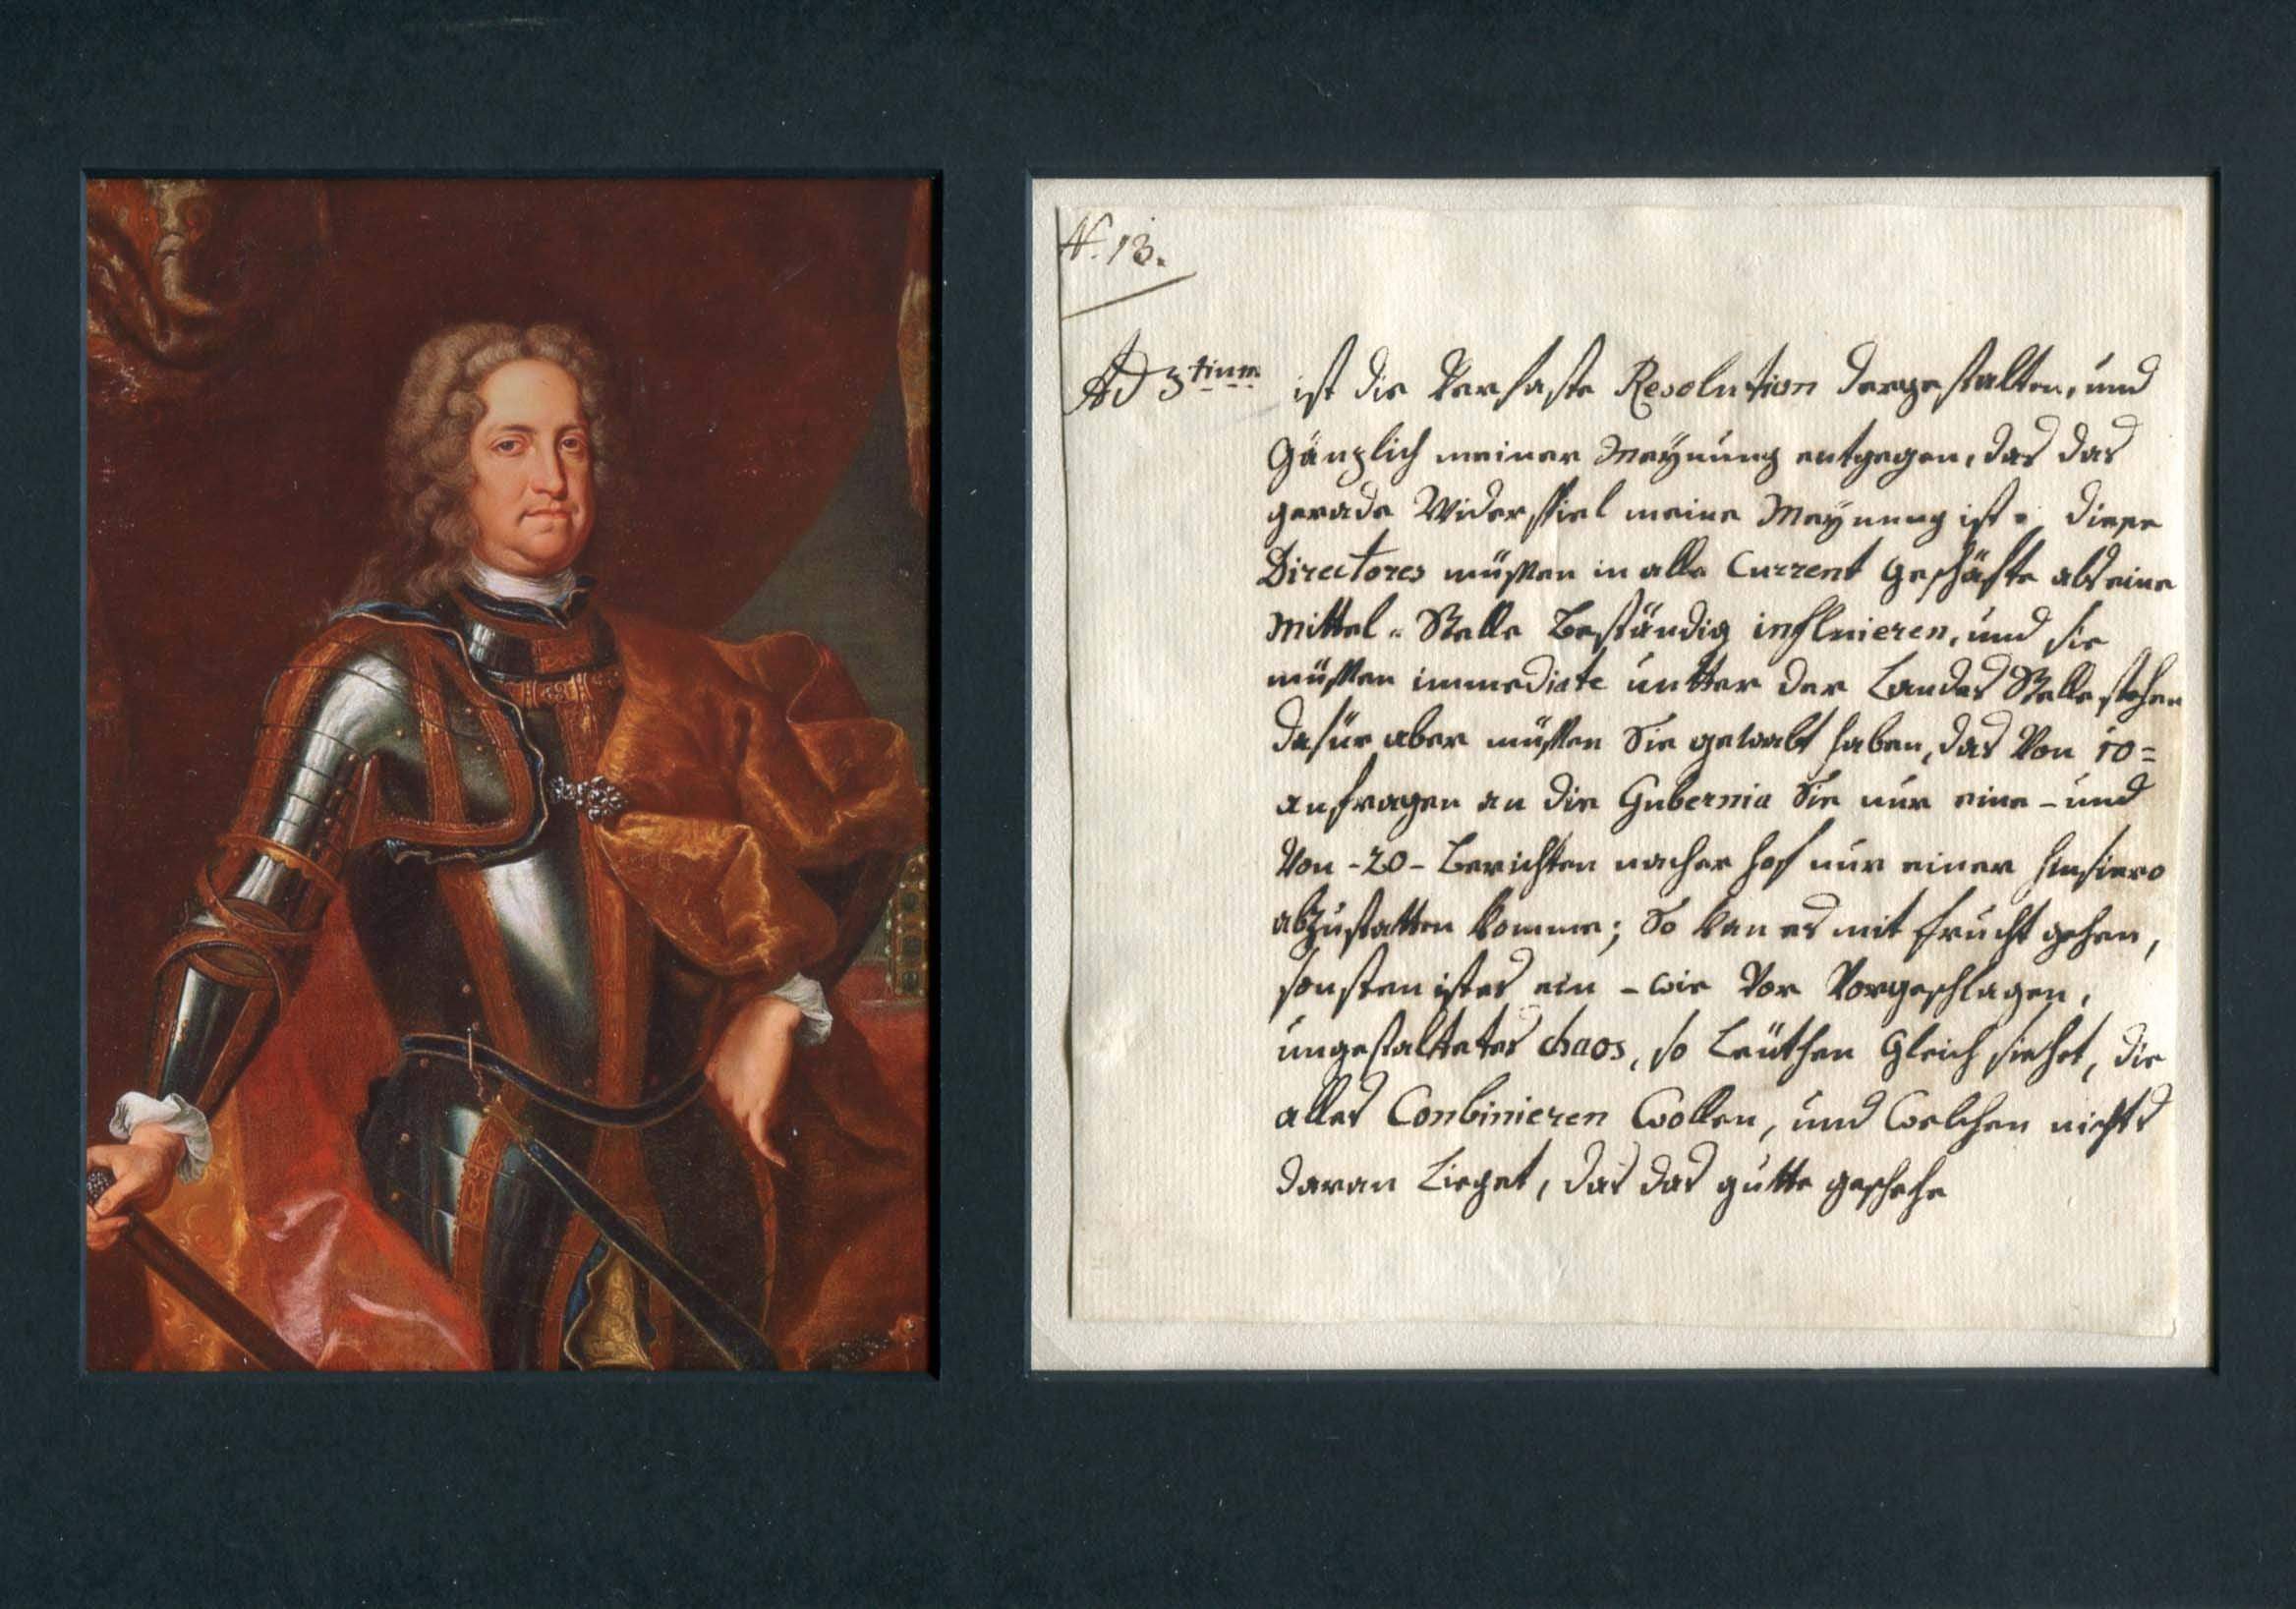 N. 13.
Ad 3tium ist die Verfaste Resolution dergestalten, und
Gänzlich meiner Meÿnung entgegen, das das
gerade Widerspiel meine Meÿnung ist. diese
Directores müssen in alle Current Geschäfte als eine
Mittel-Stelle Beständig influieren, und sie
müssen immediate untter der Landes Stelle stehen
dafür aber müssen Sie gewalt haben, das Von 10=
anfragen an die Gubernia Sie nur eine - und
Von -20- Berichten nacher hof nur einer
abzustatten komme; So kan es mit frucht gehen,
sonsten ist es ein - wie Vor Vorgeschlagen,
ungestaltetes chaos, so Leüthen Gleich siehet, die
alles Conbinieren Wollen, und Welchen nichts
daran Lieget, das das gutte geschehe